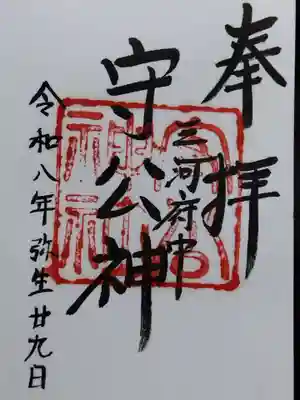 奉拝
三河府中
守公神
令和八年弥生廿九日